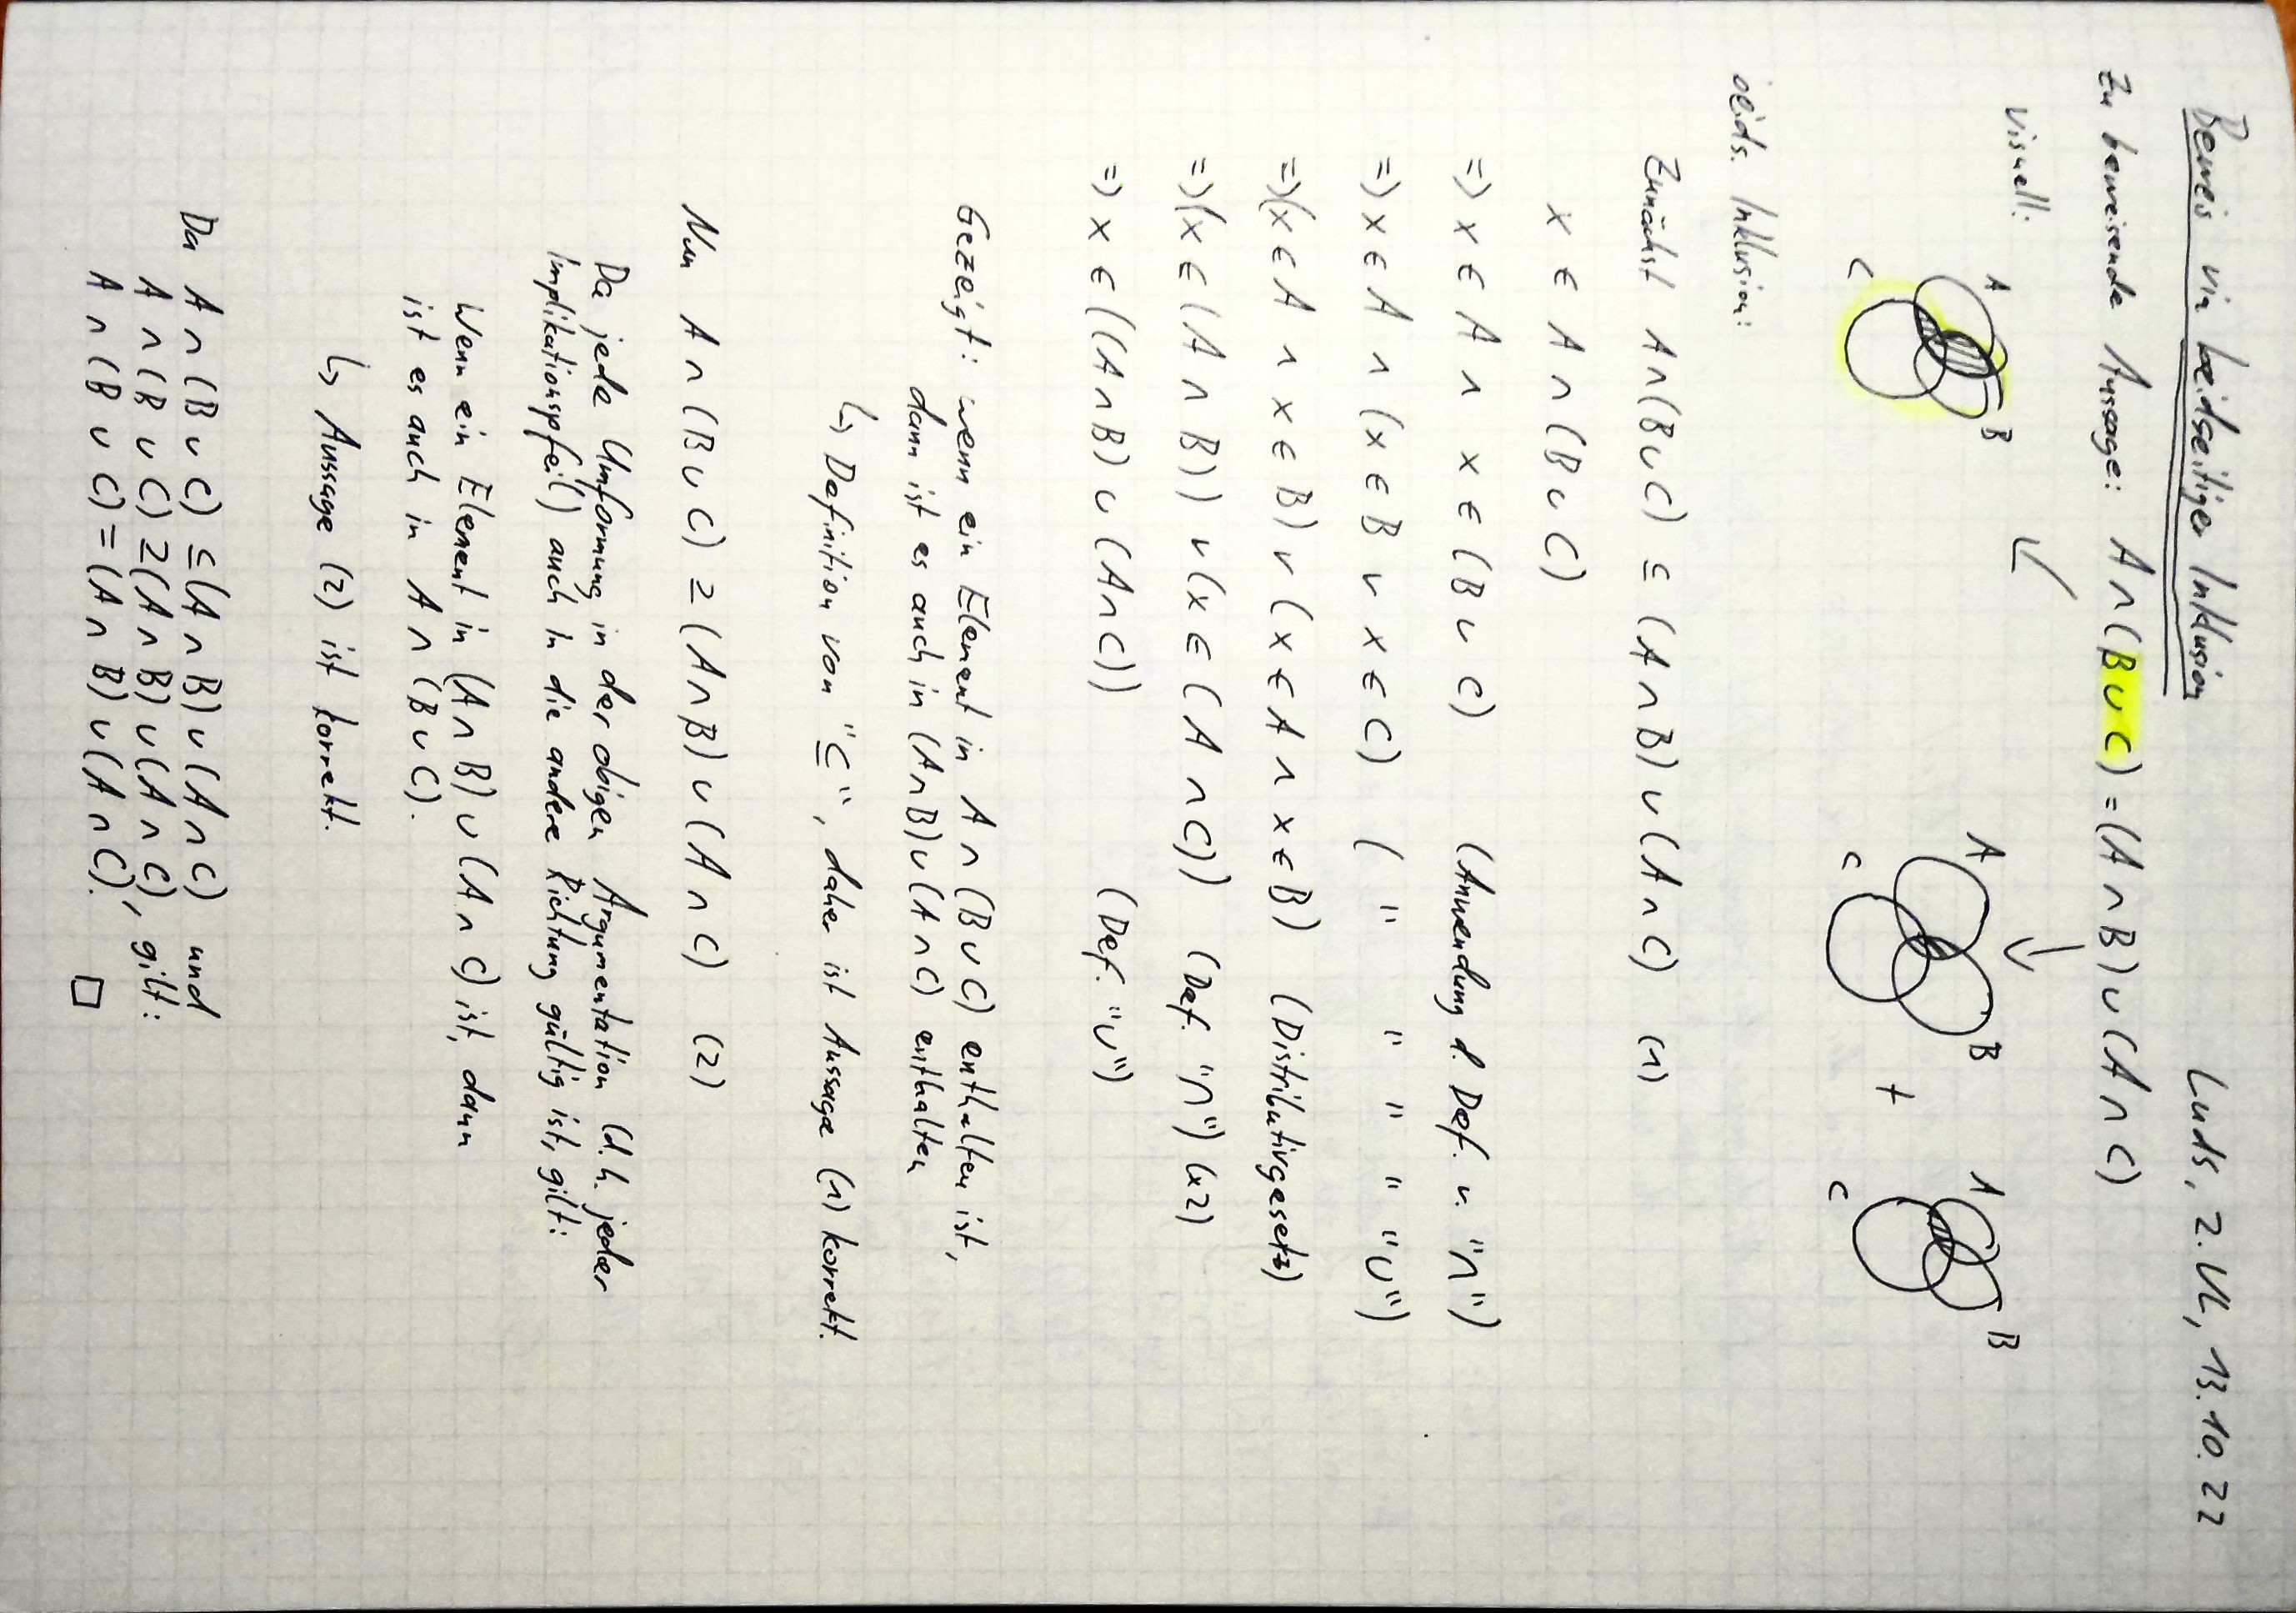 Beweis via beidseitiger Inklusion
Luds, 2. VL, 13.10.22
Zu beweisende Aussage: A ∩ (B ∪ C) = (A ∩ B) ∪ (A ∩ C)
visuell:
A B C
A B C + A B C
beids. Inklusion:
Zunächst A ∩ (B ∪ C) ⊆ (A ∩ B) ∪ (A ∩ C) (1)
x ∈ A ∩ (B ∪ C)
=> x ∈ A ∧ x ∈ (B ∪ C) (Anwendung d. Def. v. "∩")
=> x ∈ A ∧ (x ∈ B ∨ x ∈ C) ( " " " " "∪")
=> (x ∈ A ∧ x ∈ B) ∨ (x ∈ A ∧ x ∈ B) (Distributivgesetz)
=> (x ∈ (A ∩ B)) ∨ (x ∈ (A ∩ C)) (Def. "∩") (x2)
=> x ∈ ((A ∩ B) ∪ (A ∩ C)) (Def. "∪")
Gezeigt: wenn ein Element in A ∩ (B ∪ C) enthalten ist,
dann ist es auch in (A ∩ B) ∪ (A ∩ C) enthalten
↳ Definition von "⊆", daher ist Aussage (1) korrekt.
Nun A ∩ (B ∪ C) ⊇ (A ∩ B) ∪ (A ∩ C) (2)
Da jede Umformung in der obigen Argumentation (d.h. jeder
Implikationspfeil) auch in die andere Richtung gültig ist, gilt:
Wenn ein Element in (A ∩ B) ∪ (A ∩ C) ist, dann
ist es auch in A ∩ (B ∪ C).
↳ Aussage (2) ist korrekt.
Da A ∩ (B ∪ C) ⊆ (A ∩ B) ∪ (A ∩ C) und
A ∩ (B ∪ C) ⊇ (A ∩ B) ∪ (A ∩ C), gilt:
A ∩ (B ∪ C) = (A ∩ B) ∪ (A ∩ C). □